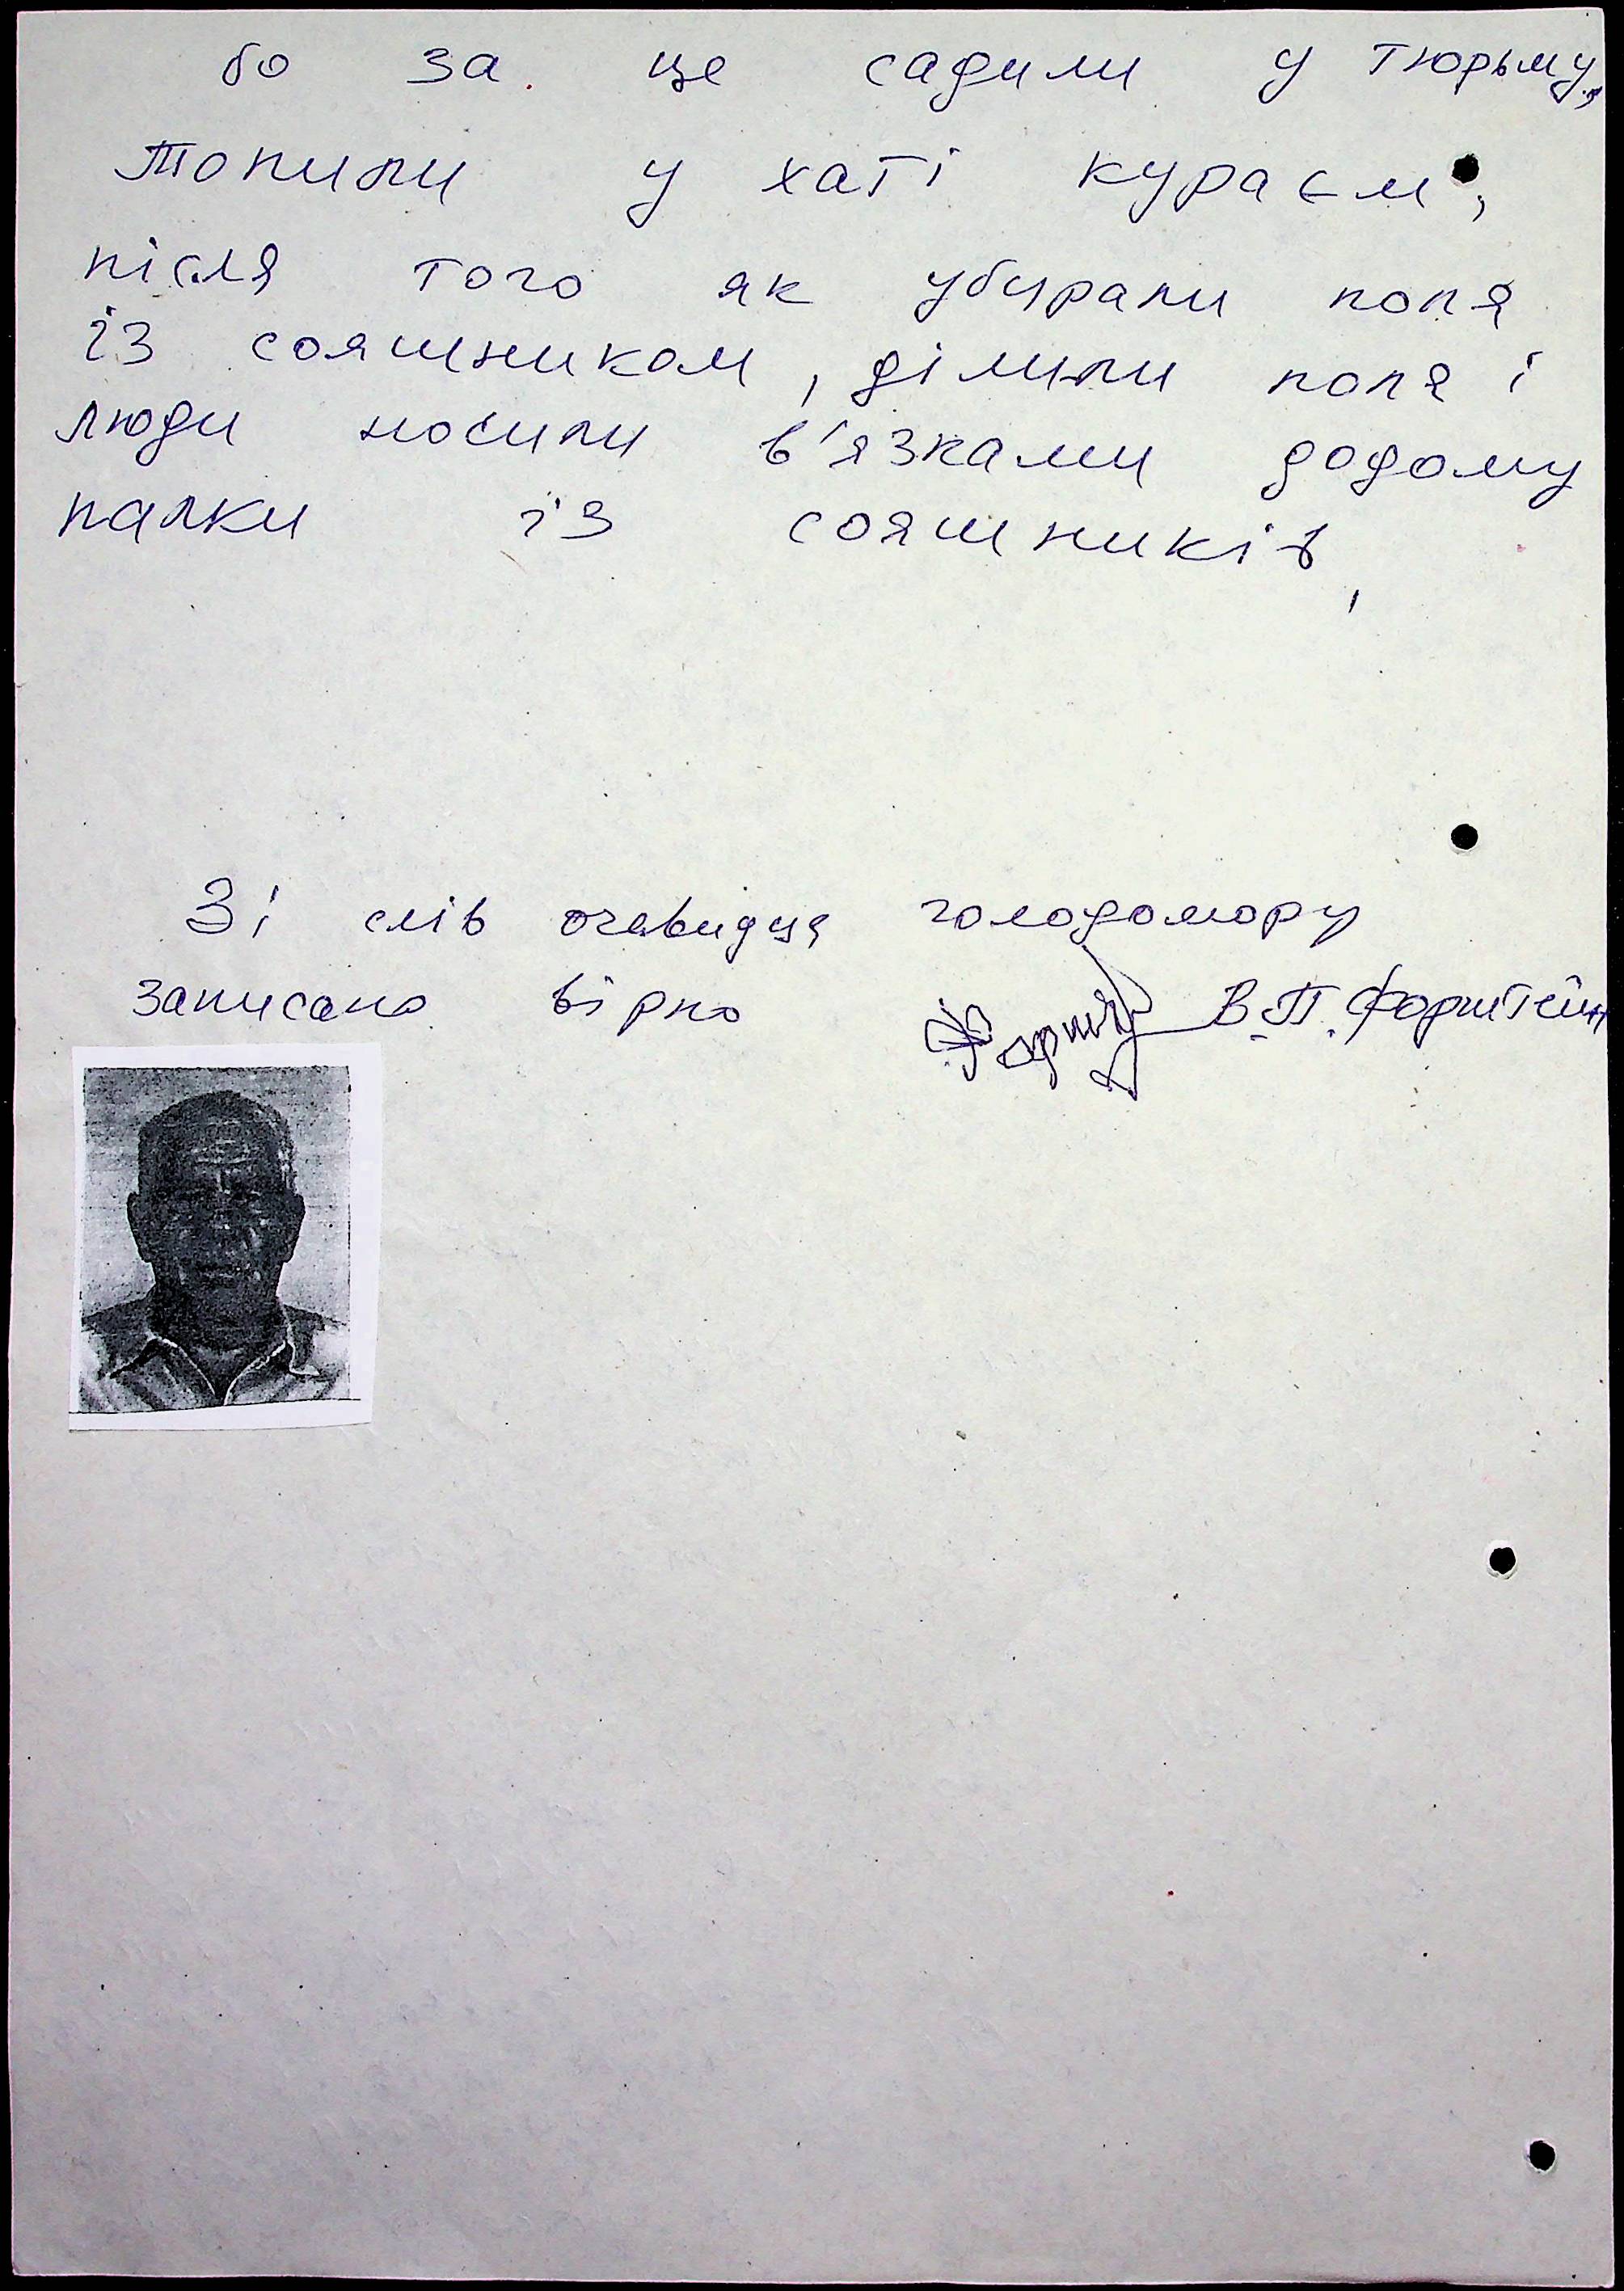 бо за це садили у тюрьму,
Топили у хаті кураєм,
після того як убирали поля
із сояшником, ділили поля і
люди носили в'язками додому
палки із сояшників,
Зі слів очевидця голодомору
записано вірно В.П. Форштейн